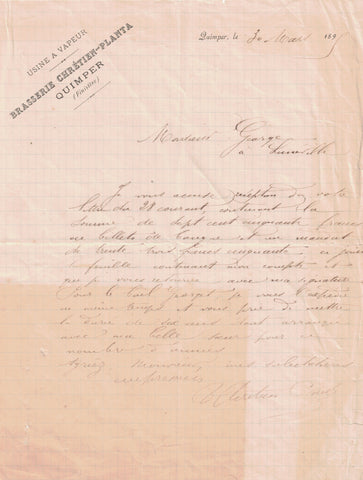 USINE A VAPEUR
BRASSERIE CHRÉTIEN-PLANTA
QUIMPER
(Finistère)
Quimper, le 30 Mars 189
Monsieur George
à Lunéville
Je vous accuse réception de votre
lettre du 28 courant contenant la
somme de sept cent cinquante francs
en billets de banque et un mandat
de trente trois francs cinquante
la feuille contenant mon compte et
que je vous retourne avec ma signature
Pour le fût je vous
en même temps et vous prie de mettre
la date de
avec ma belle sœur pour
nombre d'années
Agréez Monsieur, mes salutations
empressées
Chrétien